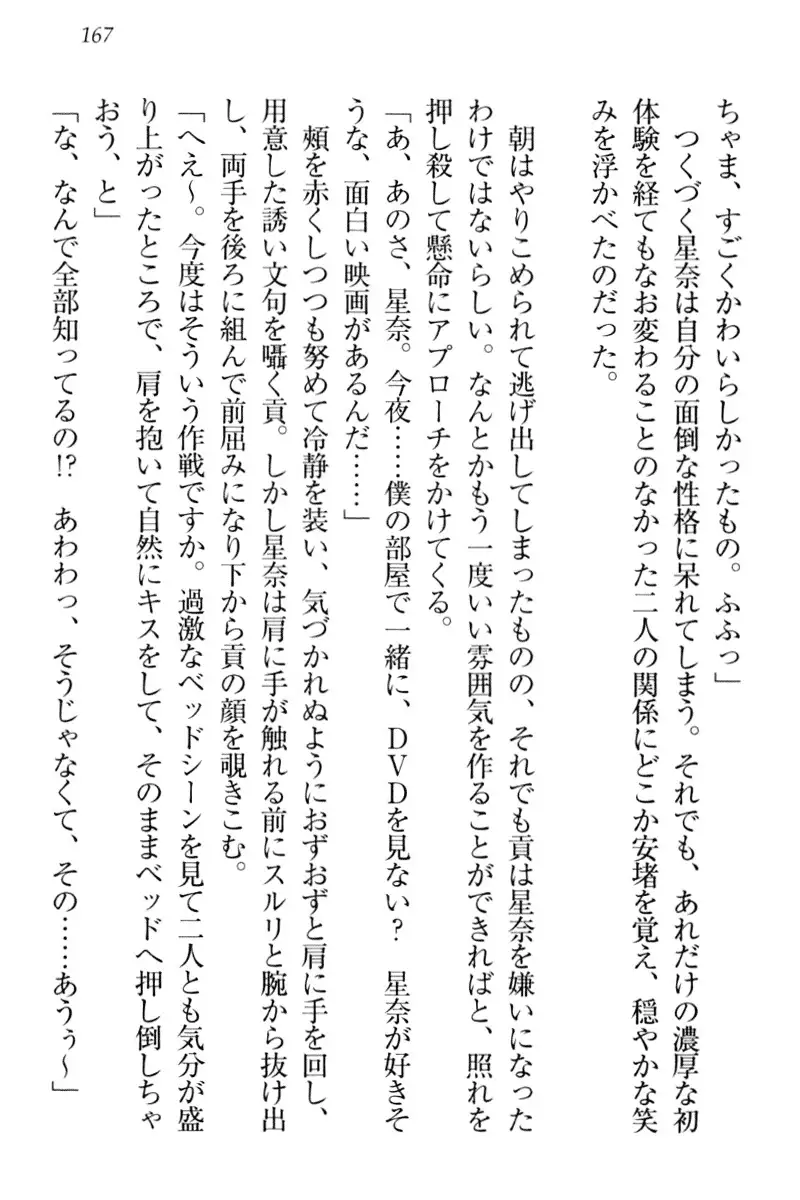 167
ちゃま、すごくかわいらしかったもの。ふふっ」
　つくづく星奈は自分の面倒な性格に呆れてしまう。それでも、あれだけの濃厚な初
体験を経てもなお変わることのなかった二人の関係にどこか安堵を覚え、穏やかな笑
みを浮かべたのだった。
　朝はやりこめられて逃げ出してしまったものの、それでも貢は星奈を嫌いになった
わけではないらしい。なんとかもう一度いい雰囲気を作ることができればと、照れを
押し殺して懸命にアプローチをかけてくる。
「あ、あのさ、星奈。今夜……僕の部屋で一緒に、ＤＶＤを見ない？　星奈が好きそ
うな、面白い映画があるんだ……」
　頬を赤くしつつも努めて冷静を装い、気づかれぬようにおずおずと肩に手を回し、
用意した誘い文句を囁く貢。しかし星奈は肩に手が触れる前にスルリと腕から抜け出
し、両手を後ろに組んで前屈みになり下から貢の顔を覗きこむ。
「へえ〜。今度はそういう作戦ですか。過激なベッドシーンを見て二人とも気分が盛
り上がったところで、肩を抱いて自然にキスをして、そのままベッドへ押し倒しちゃ
おう、と」
「な、なんで全部知ってるの!?　あわわっ、そうじゃなくて、その……あうぅ〜」